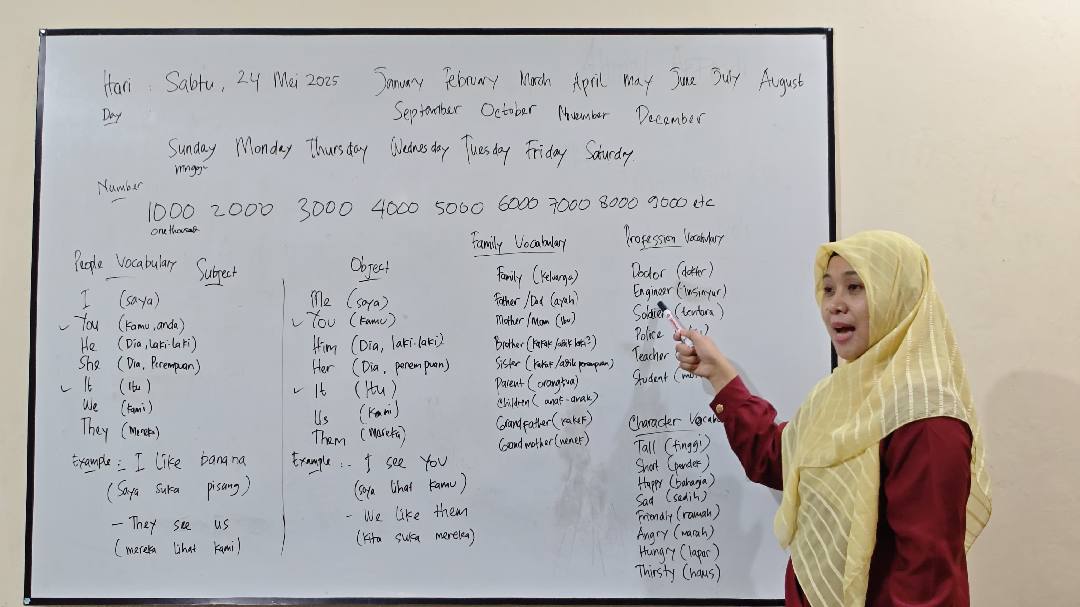 Hari : Sabtu, 24 Mei 2025 January February March April May June July August
Day September October November December
Sunday Monday Thursday Wednesday Tuesday Friday Saturdy
minggu
Number
1000 2000 3000 4000 5000 6000 7000 8000 9000 etc
one thousand
People Vocabulary Subject
I (saya)
You (kamu, anda)
He (Dia, laki-laki)
She (Dia, Perempuan)
It (Itu)
We (kami)
They (Mereka)
Example :- I like banana
(Saya suka pisang)
- They see us
(mereka lihat kami)
Object
Me (saya)
You (kamu)
Him (Dia, laki-laki)
Her (Dia, perempuan)
It (Itu)
Us (Kami)
Them (Mereka)
Example :- I see you
(saya lihat kamu)
- We like them
(kita suka mereka)
Family Vocabulary
Family (keluarga)
Father/Dad (ayah)
Mother/Mom (Ibu)
Brother (kakak/adik laki²)
Sister (kakak/adik perempuan)
Parent (orangtua)
Children (anak-anak)
Grandfather (kakek)
Grandmother (nenek)
Profession Vocabulary
Doctor (dokter)
Engineer (Insinyur)
Soldier (tentara)
Police
Teacher
Student
Character
Tall (tinggi)
Short (pendek)
Happy (bahagia)
Sad (sedih)
Friendly (ramah)
Angry (marah)
Hungry (lapar)
Thirsty (haus)